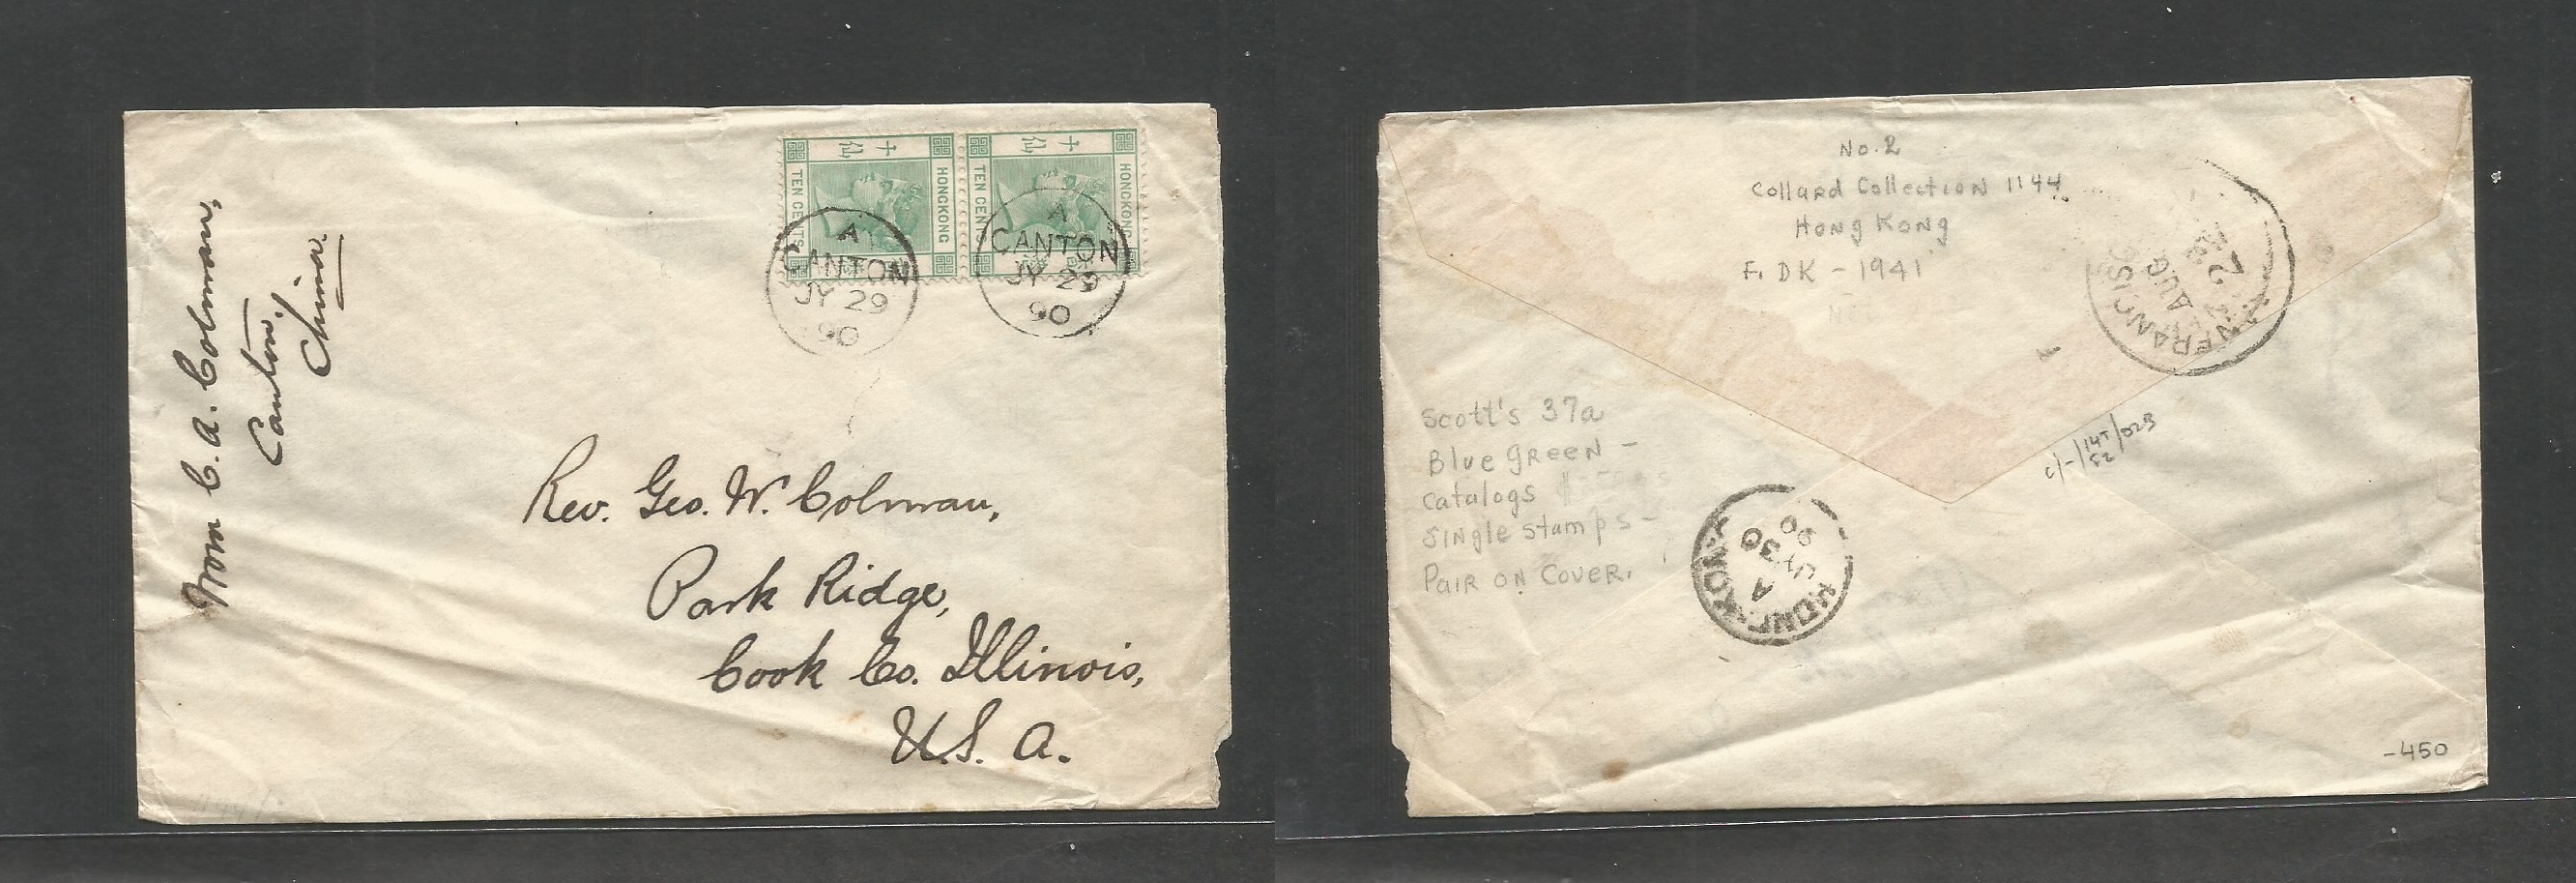 From C. A. Colman,
Canton,
China.
十仙
HONGKONG
TEN CENTS
十仙
HONGKONG
TEN CENTS
A
CANTON
JY 29
90
A
CANTON
JY 29
90
Rev. Geo. W. Colman,
Park Ridge,
Cook Co. Illinois,
U.S. A.
No. 2
Collard Collection 1144
Hong Kong
F. DK - 1941
FRANCISC
AUG
Scott's 37a
Blue Green -
Catalogs
Single Stamps -
Pair on Cover.
HONG KONG
A
JY 30
90
-450